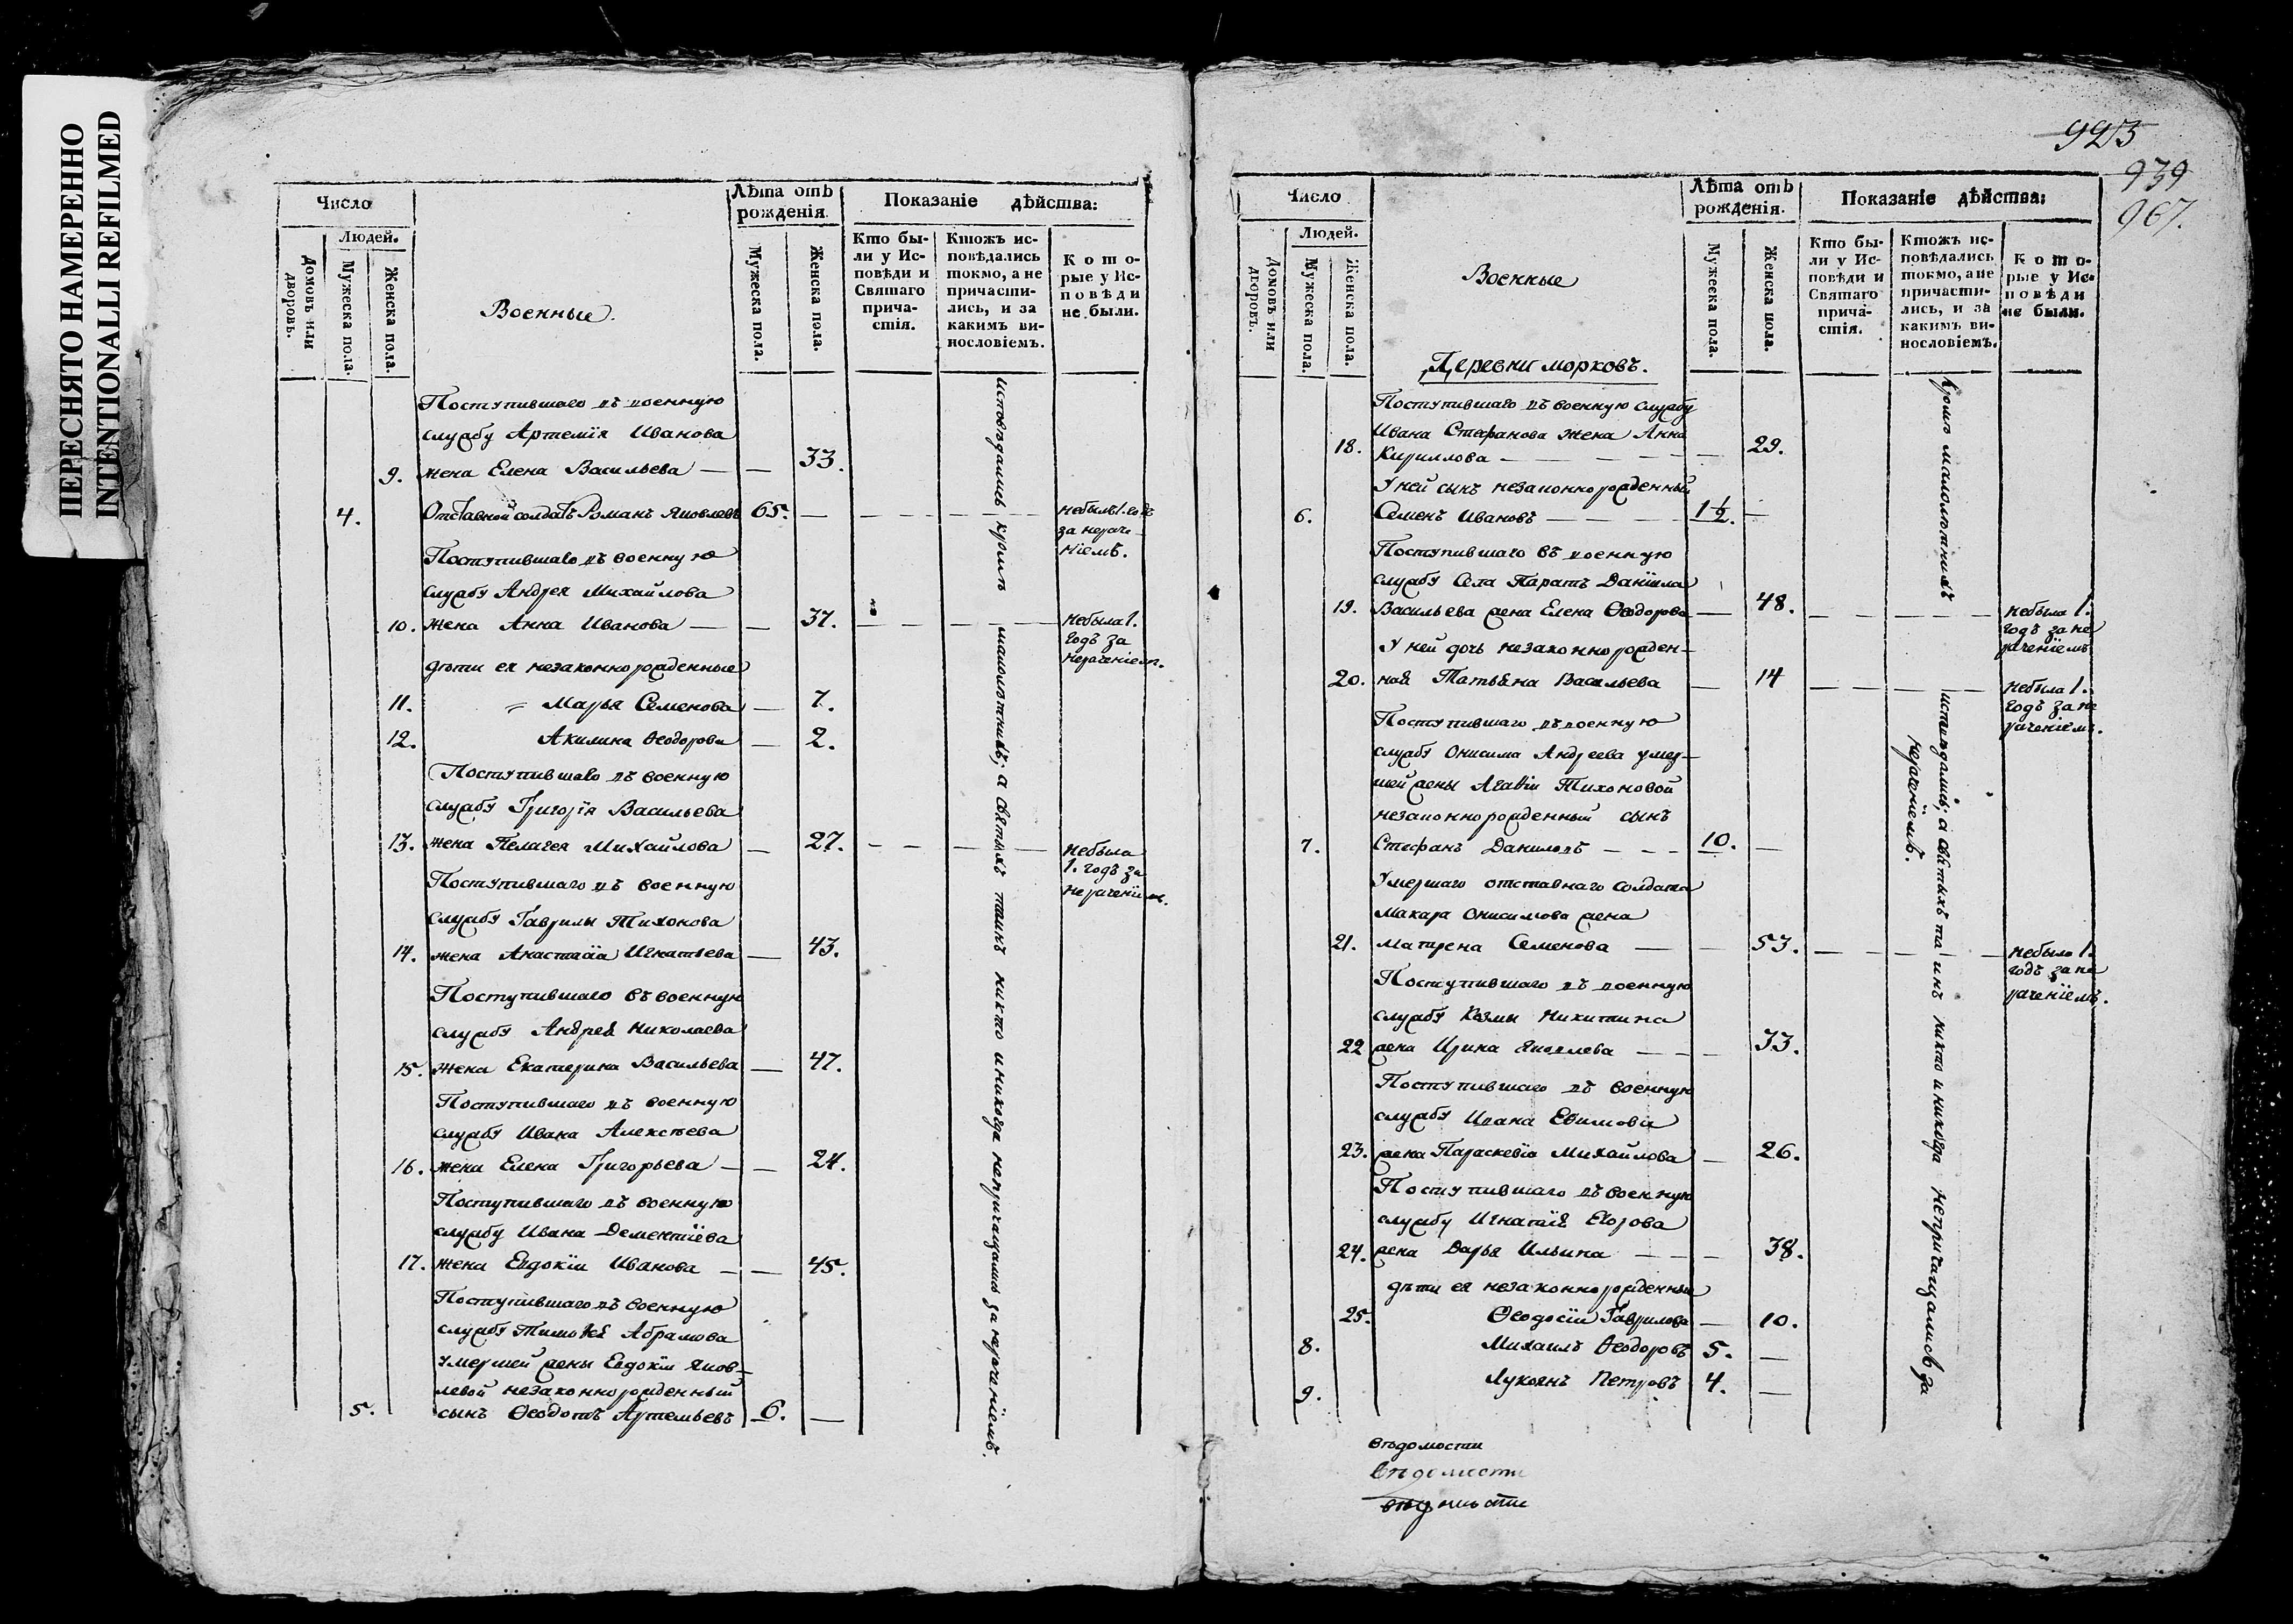 ПЕРЕСНЯТО НАМЕРЕННО
INTENTIONALLI REFILMED
Число
Людей.
Домовъ или дворовъ.
Мужеска пола.
Женска пола.
Военные.
Лѣта отъ рожденія.
Мужеска пола.
Женска пола.
Показаніе дѣйства:
Кто бы-
ли у Ис-
повѣди и
Святаго
прича-
стія.
Ктожъ ис-
повѣдались
токмо, а не
причасти-
лись, и за
какимъ ви-
нословіемъ.
Кото-
рые у Ис-
повѣди
не были.
Поступившаго въ военную
службу Артемія Иванова
9. жена Елена Васильева — — 33.
4. Отставной солдатъ Романъ Яковлевъ 65. —
небылъ 1. годъ
за нераче-
ніемъ.
Поступившаго въ военную
службу Андрея Михайлова
10. жена Анна Иванова — — 37.
небыла 1.
годъ за
нераченіем.
дѣти ея незаконнорожденные
11. Марья Семенова — 7.
12. Акилина Ѳеодорова — 2.
Поступившаго въ военную
службу Григорія Васильева
13. жена Пелагея Михайлова — 27.
небыла
1. годъ за
нераченіем.
Поступившаго въ военную
службу Гаврилы Тихонова
14. жена Анастасія Игнатьева — 43.
Поступившаго въ военную
службу Андрея Николаева
15. жена Екатерина Васильева — 47.
Поступившаго въ военную
службу Ивана Алексѣева
16. жена Елена Григорьева — — 24.
Поступившаго въ военную
службу Ивана Дементіева
17. жена Евдокія Иванова — — 45.
Поступившаго въ военную
службу Тимоѳея Абрамова
умершей жены Евдокіи Яков-
левой незаконнорожденный
5. сынъ Ѳеодотъ Артемьевъ 6. —
исповѣдались кромѣ малолѣтнихъ, а святыхъ таинъ никто и никогда непричащались за нераченіемъ.
925
939
967.
Число
Людей.
Домовъ или дворовъ.
Мужеска пола.
Женска пола.
Военные
Лѣта отъ рожденія.
Мужеска пола.
Женска пола.
Показаніе дѣйства:
Кто бы-
ли у Ис-
повѣди и
Святаго
прича-
стія.
Ктожъ ис-
повѣдались
токмо, а не
причасти-
лись, и за
какимъ ви-
нословіемъ.
Кото-
рые у Ис-
повѣди
не были.
Деревни морковъ.
Поступившаго въ военную службу
Ивана Стефанова жена Анна
18. Кириллова — — — 29.
У ней сынъ незаконнорожденный
6. Семенъ Ивановъ — — — 1½. —
Поступившаго въ военную
службу Села Паратъ Даніила
19. Васильева жена Елена Ѳеодорова — 48.
небыла 1.
годъ за не
раченіемъ
У ней дочь незаконнорожден-
20. ная Татьяна Васильева — 14
небыла 1.
годъ за не
раченіемъ.
Поступившаго въ военную
службу Онисима Андреева умер-
шей жены Агаѳіи Тихоновой
незаконнорожденный сынъ
7. Стефанъ Даниловъ — — — 10. —
Умершаго отставнаго солдата
Макара Онисимова жена
21. Матрена Семенова — — 53.
небыла 1.
годъ за не
раченіемъ.
Поступившаго въ военную
службу Козмы Никитина
22 жена Ирина Яковлева — — — 33.
Поступившаго въ военную
службу Ивана Евимова
23. жена Параскевія Михайлова — 26.
Поступившаго въ военную
службу Игнатія Егорова
24. жена Дарья Ильина — — — 38.
дѣти ея незаконнорожденныи
25. Ѳеодосія Гаврилова — 10.
8. Михаилъ Ѳеодоровъ 5. —
9. Лукоянъ Петровъ 4. —
Кромѣ малолѣтнихъ исповѣдались, а святыхъ таинъ никто и никогда непричащались за
нераченіемъ.
вѣдомости
вѣдомости
вѣдомости